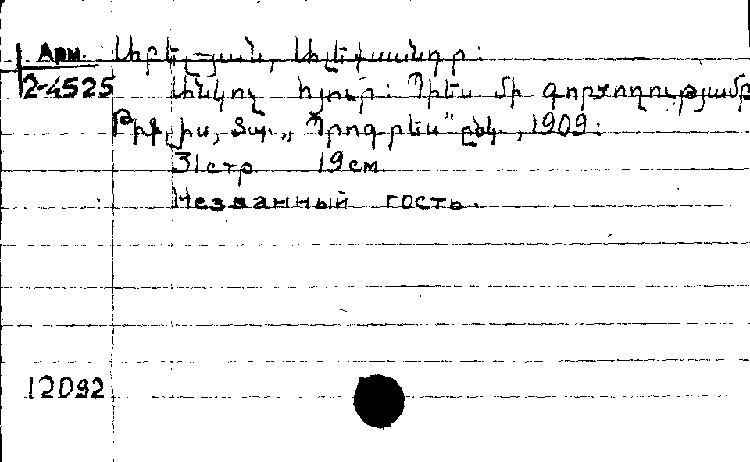 Арм. Աբելյան, Ալեքսանդր:
2-4525 Անկոչ հյուր: Պիես մի գործողությամբ
Թիֆլիս, տպ. „Պրոգրես" ընկ., 1909:
31стр 19см.
Незванный гость.
12092